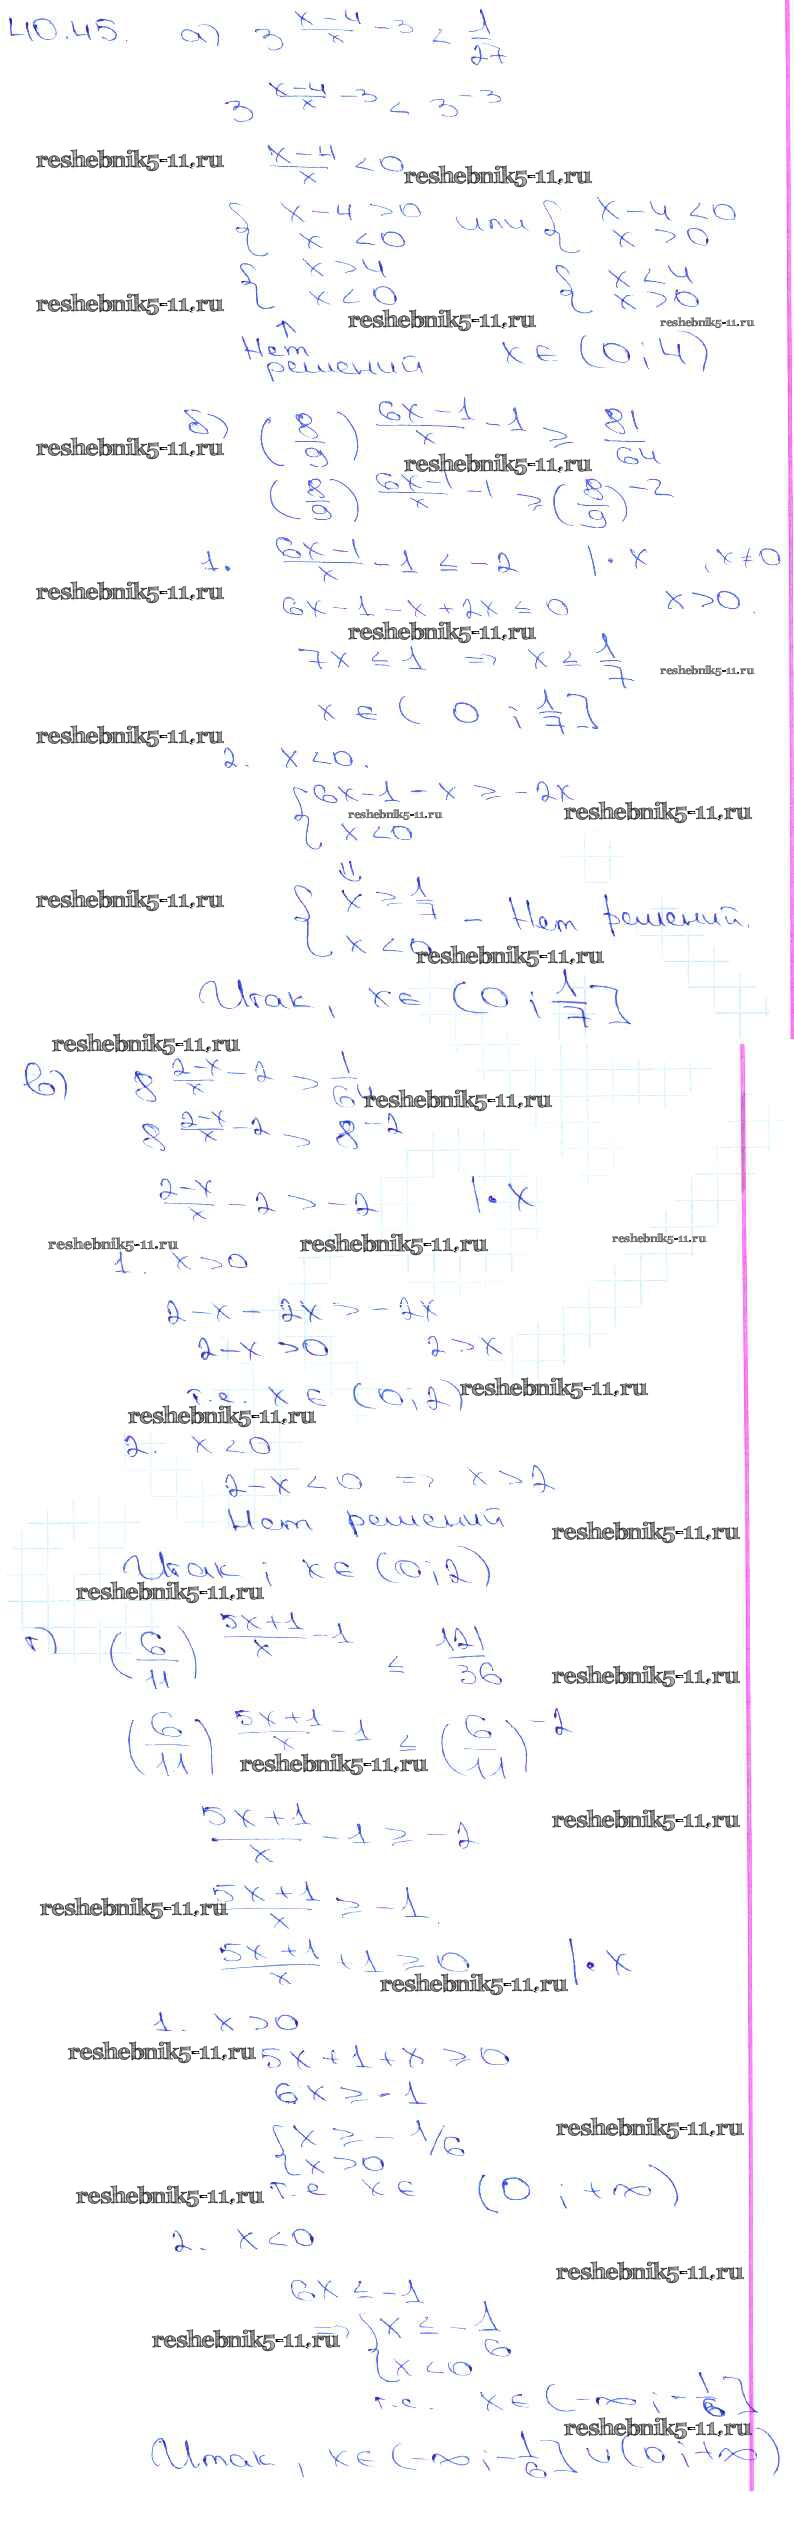 40.45. а) 3^((x-4)/x - 3) < 1/27
3^((x-4)/x - 3) < 3^(-3)
reshebnik5-11.ru (x-4)/x < 0 reshebnik5-11.ru
{ x-4 > 0 или { x-4 < 0
x < 0 x > 0
{ x > 4 { x < 4
reshebnik5-11.ru x < 0 reshebnik5-11.ru x > 0 reshebnik5-11.ru
↑
Нет
решений x ∈ (0; 4)
б) (8/9)^((6x-1)/x - 1) ≥ 81/64
reshebnik5-11.ru reshebnik5-11.ru
(8/9)^((6x-1)/x - 1) ≥ (8/9)^(-2)
1. (6x-1)/x - 1 ≤ -2 | · x , x ≠ 0
reshebnik5-11.ru 6x-1-x+2x ≤ 0 x > 0.
reshebnik5-11.ru
7x ≤ 1 ⇒ x ≤ 1/7 reshebnik5-11.ru
x ∈ (0; 1/7]
reshebnik5-11.ru
2. x < 0.
{ 6x-1-x ≥ -2x
reshebnik5-11.ru reshebnik5-11.ru
x < 0
⇓
reshebnik5-11.ru { x ≥ 1/7 - Нет решений.
x < 0 reshebnik5-11.ru
Итак, x ∈ (0; 1/7]
reshebnik5-11.ru
в) 8^((2-x)/x - 2) > 1/64
reshebnik5-11.ru
8^((2-x)/x - 2) > 8^(-2)
(2-x)/x - 2 > -2 | · x
reshebnik5-11.ru reshebnik5-11.ru reshebnik5-11.ru
1. x > 0
2-x-2x > -2x
2-x > 0 2 > x
т.е. x ∈ (0; 2) reshebnik5-11.ru
reshebnik5-11.ru
2. x < 0
2-x < 0 ⇒ x > 2
Нет решений reshebnik5-11.ru
Итак ; x ∈ (0; 2)
reshebnik5-11.ru
г) (6/11)^((5x+1)/x - 1) ≤ 121/36
reshebnik5-11.ru
(6/11)^((5x+1)/x - 1) ≤ (6/11)^(-2)
reshebnik5-11.ru
(5x+1)/x - 1 ≥ -2 reshebnik5-11.ru
reshebnik5-11.ru (5x+1)/x ≥ -1
(5x+1)/x + 1 ≥ 0 | · x
reshebnik5-11.ru
1. x > 0
reshebnik5-11.ru 5x+1+x ≥ 0
6x ≥ -1
{ x ≥ -1/6 reshebnik5-11.ru
x > 0
reshebnik5-11.ru т.е x ∈ (0; +∞)
2. x < 0
reshebnik5-11.ru
6x ≤ -1
reshebnik5-11.ru ⇒ { x ≤ -1/6
x < 0
т.е. x ∈ (-∞; -1/6]
reshebnik5-11.ru
Итак, x ∈ (-∞; -1/6] ∪ (0; +∞)